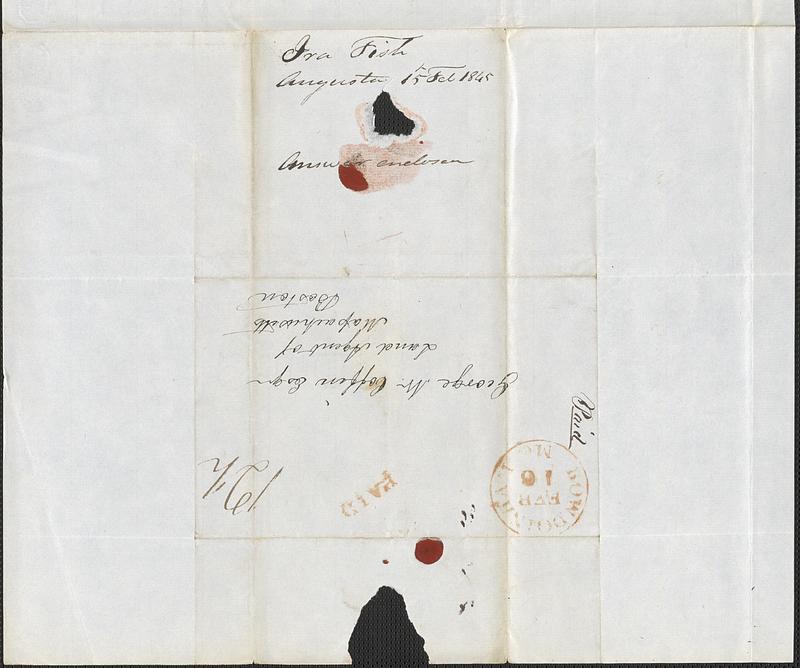 Ira Fish
Augusta 15 Feb 1845
Answer enclosed
George W. Coffin Esqr
Land Agent of
Massachusetts
Boston
Paid
12½
PAID
BOWDOINHAM
FEB
16
ME